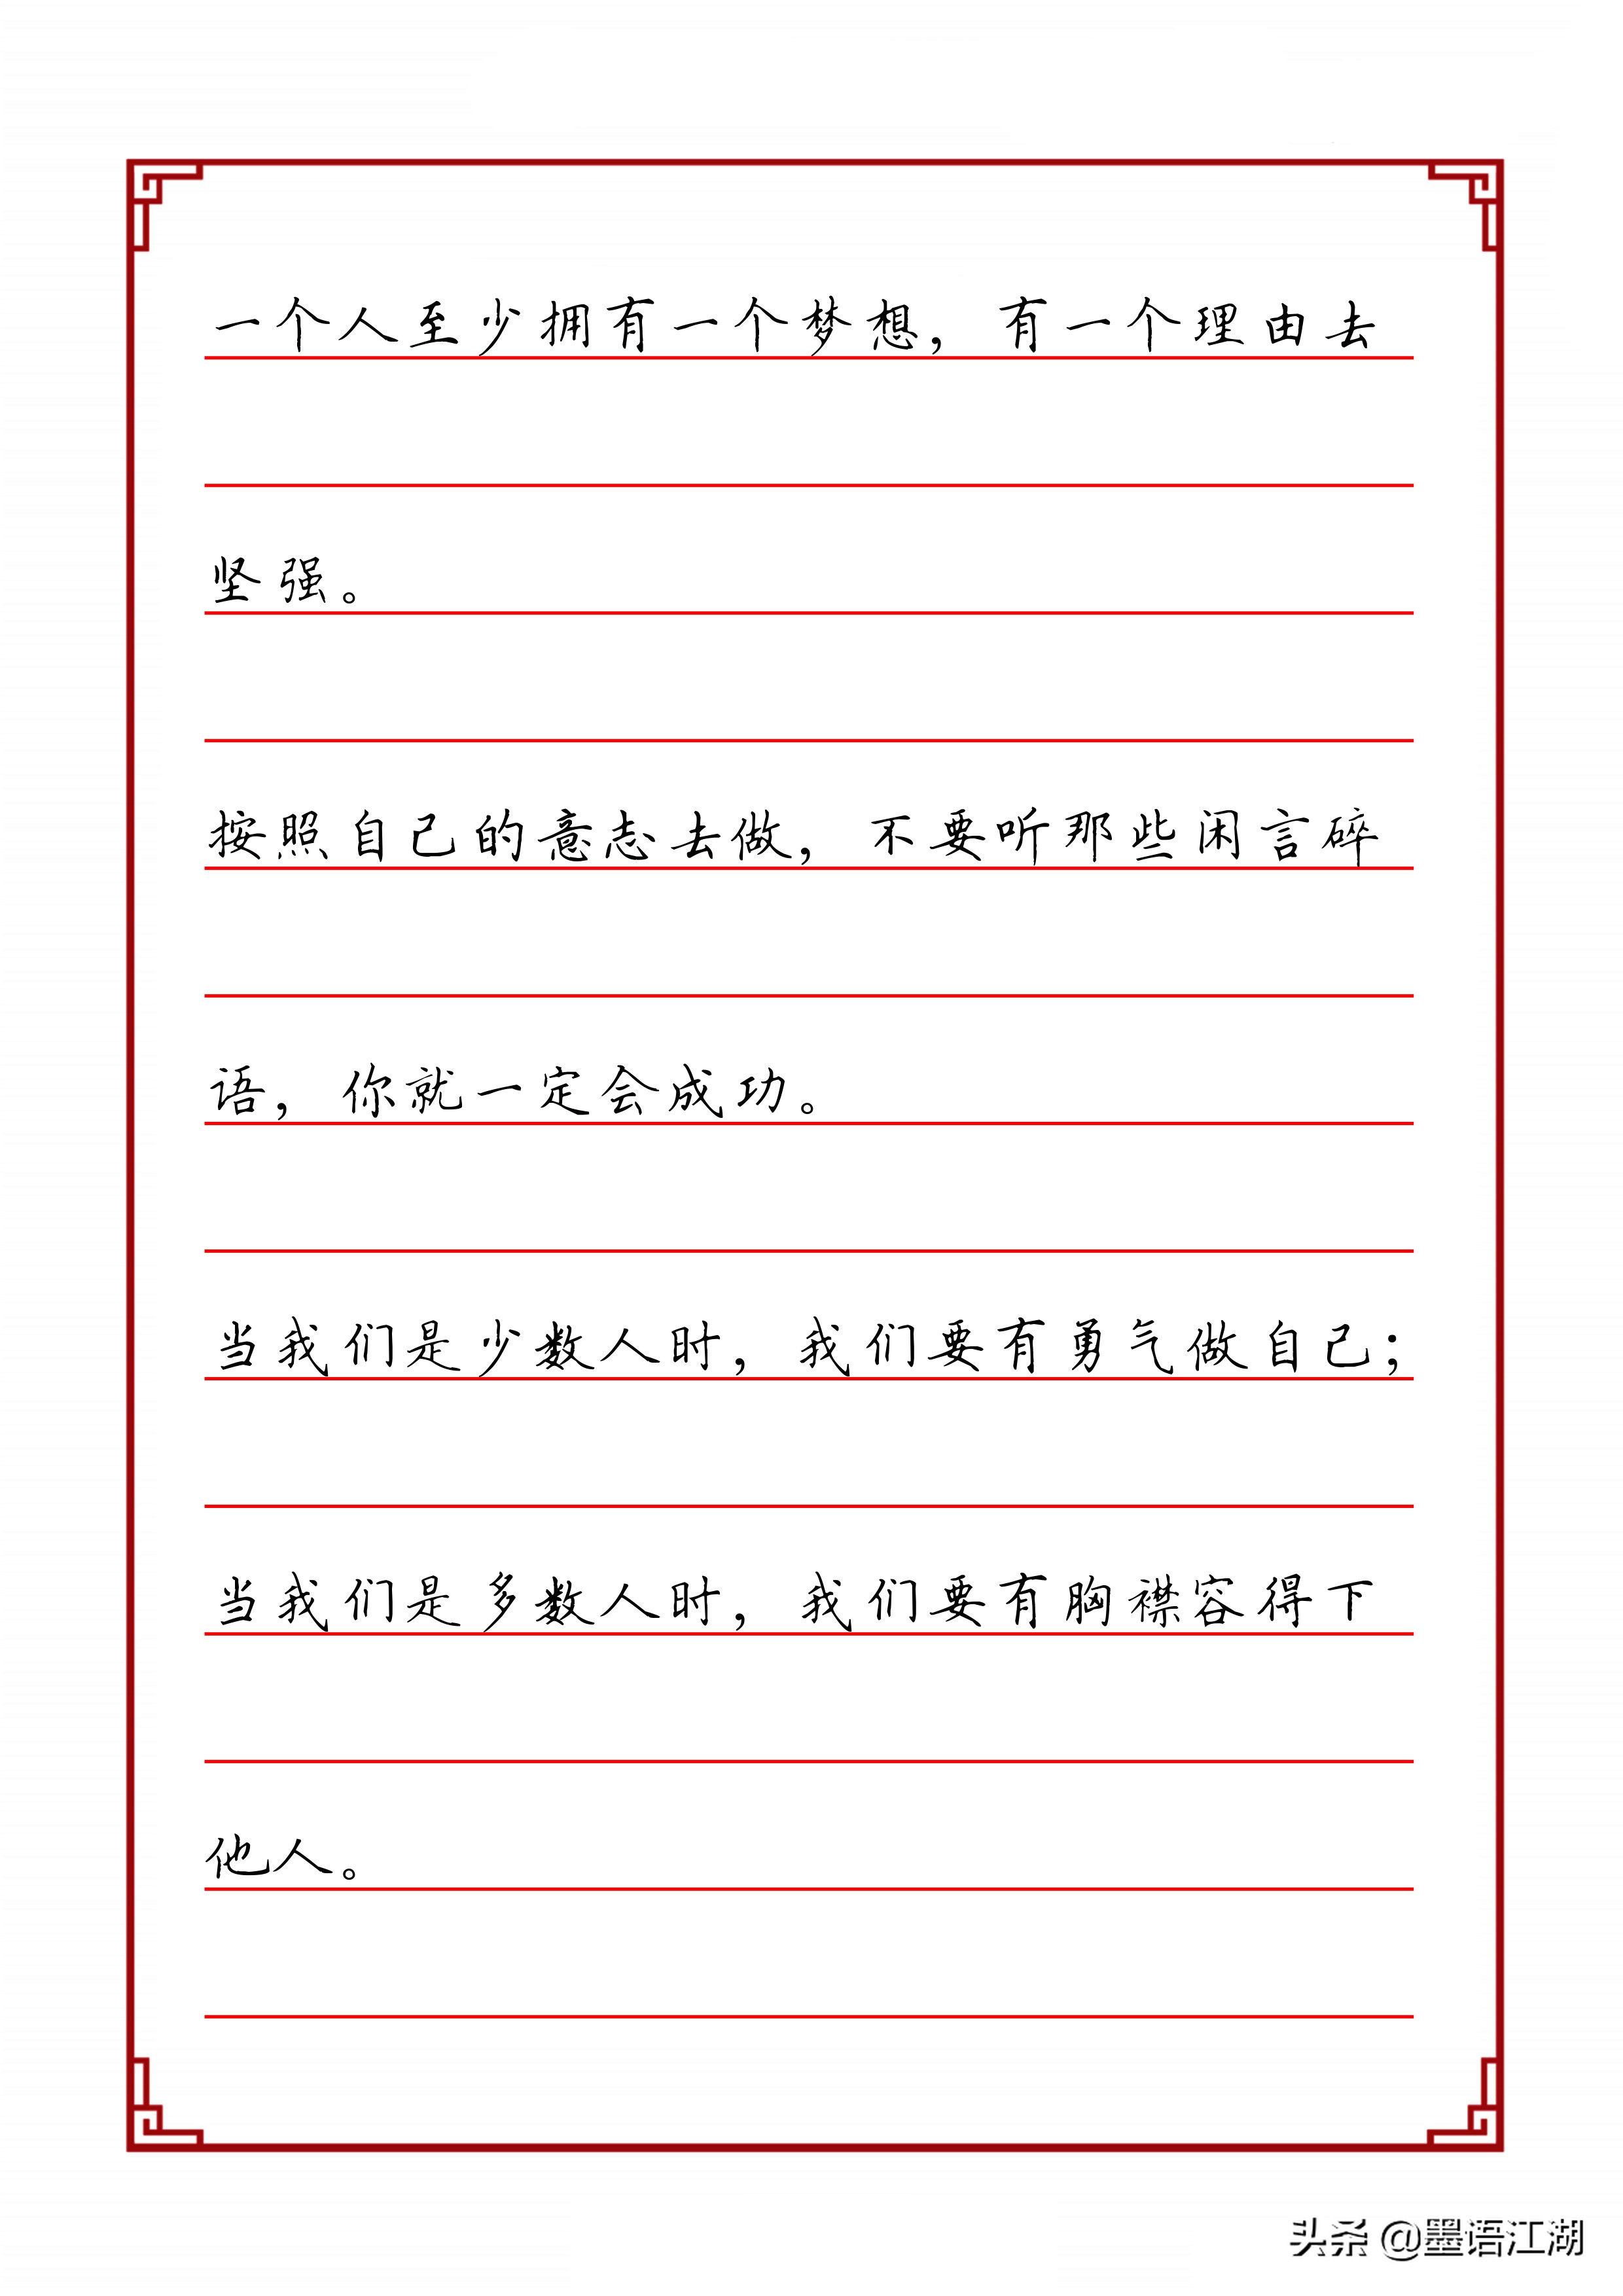 一个人至少拥有一个梦想，有一个理由去
坚强。
按照自己的意志去做，不要听那些闲言碎
语，你就一定会成功。
当我们是少数人时，我们要有勇气做自己；
当我们是多数人时，我们要有胸襟容得下
他人。
头条 @墨语江湖